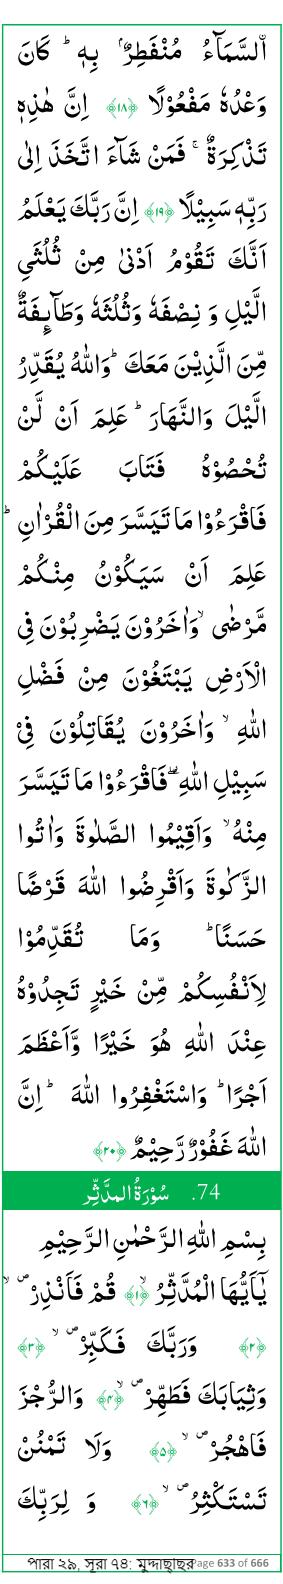 اۨلسَّمَآءُ مُنْفَطِرٌۢ بِهٖ ؕ كَانَ
وَعْدُهٗ مَفْعُوْلًا ﴿۱۸﴾ اِنَّ هٰذِهٖ
تَذْكِرَةٌ ۚ فَمَنْ شَآءَ اتَّخَذَ اِلٰى
رَبِّهٖ سَبِيْلًا ﴿۱۹﴾ اِنَّ رَبَّكَ يَعْلَمُ
اَنَّكَ تَقُوْمُ اَدْنٰى مِنْ ثُلُثَىِ
الَّيْلِ وَ نِصْفَهٗ وَثُلُثَهٗ وَطَآٮِٕفَةٌ
مِّنَ الَّذِيْنَ مَعَكَ ؕ وَاللّٰهُ يُقَدِّرُ
الَّيْلَ وَالنَّهَارَ ؕ عَلِمَ اَنْ لَّنْ
تُحْصُوْهُ فَتَابَ عَلَيْكُمْ
فَاقْرَءُوْا مَا تَيَسَّرَ مِنَ الْقُرْاٰنِ ؕ
عَلِمَ اَنْ سَيَكُوْنُ مِنْكُمْ
مَّرْضٰى ۙ وَاٰخَرُوْنَ يَضْرِبُوْنَ فِى
الْاَرْضِ يَبْتَغُوْنَ مِنْ فَضْلِ
اللّٰهِ ۙ وَاٰخَرُوْنَ يُقَاتِلُوْنَ فِىْ
سَبِيْلِ اللّٰهِ ۖؗ فَاقْرَءُوْا مَا تَيَسَّرَ
مِنْهُ ۙ وَاَقِيْمُوا الصَّلٰوةَ وَاٰتُوا
الزَّكٰوةَ وَاَقْرِضُوا اللّٰهَ قَرْضًا
حَسَنًا ؕ وَمَا تُقَدِّمُوْا
لِاَنْفُسِكُمْ مِّنْ خَيْرٍ تَجِدُوْهُ
عِنْدَ اللّٰهِ هُوَ خَيْرًا وَّاَعْظَمَ
اَجْرًا ؕ وَاسْتَغْفِرُوا اللّٰهَ ؕ اِنَّ
اللّٰهَ غَفُوْرٌ رَّحِيْمٌ ﴿۲۰﴾
74. سُوْرَةُ المدَّثِّر
بِسْمِ اللّٰهِ الرَّحْمٰنِ الرَّحِيْمِ
يٰۤاَيُّهَا الْمُدَّثِّرُ ۙ ﴿۱﴾ قُمْ فَاَنْذِرْ ۙ ص
﴿۲﴾ وَرَبَّكَ فَكَبِّرْ ۙ ص ﴿۳﴾
وَثِيَابَكَ فَطَهِّرْ ۙ ص ﴿۴﴾ وَالرُّجْزَ
فَاهْجُرْ ۙ ص ﴿۵﴾ وَلَا تَمْنُنْ
تَسْتَكْثِرُ ۙ ص ﴿۶﴾ وَ لِرَبِّكَ
পারা ২৯, সূরা ৭৪: মুদ্দাছ্ছির Page 633 of 666